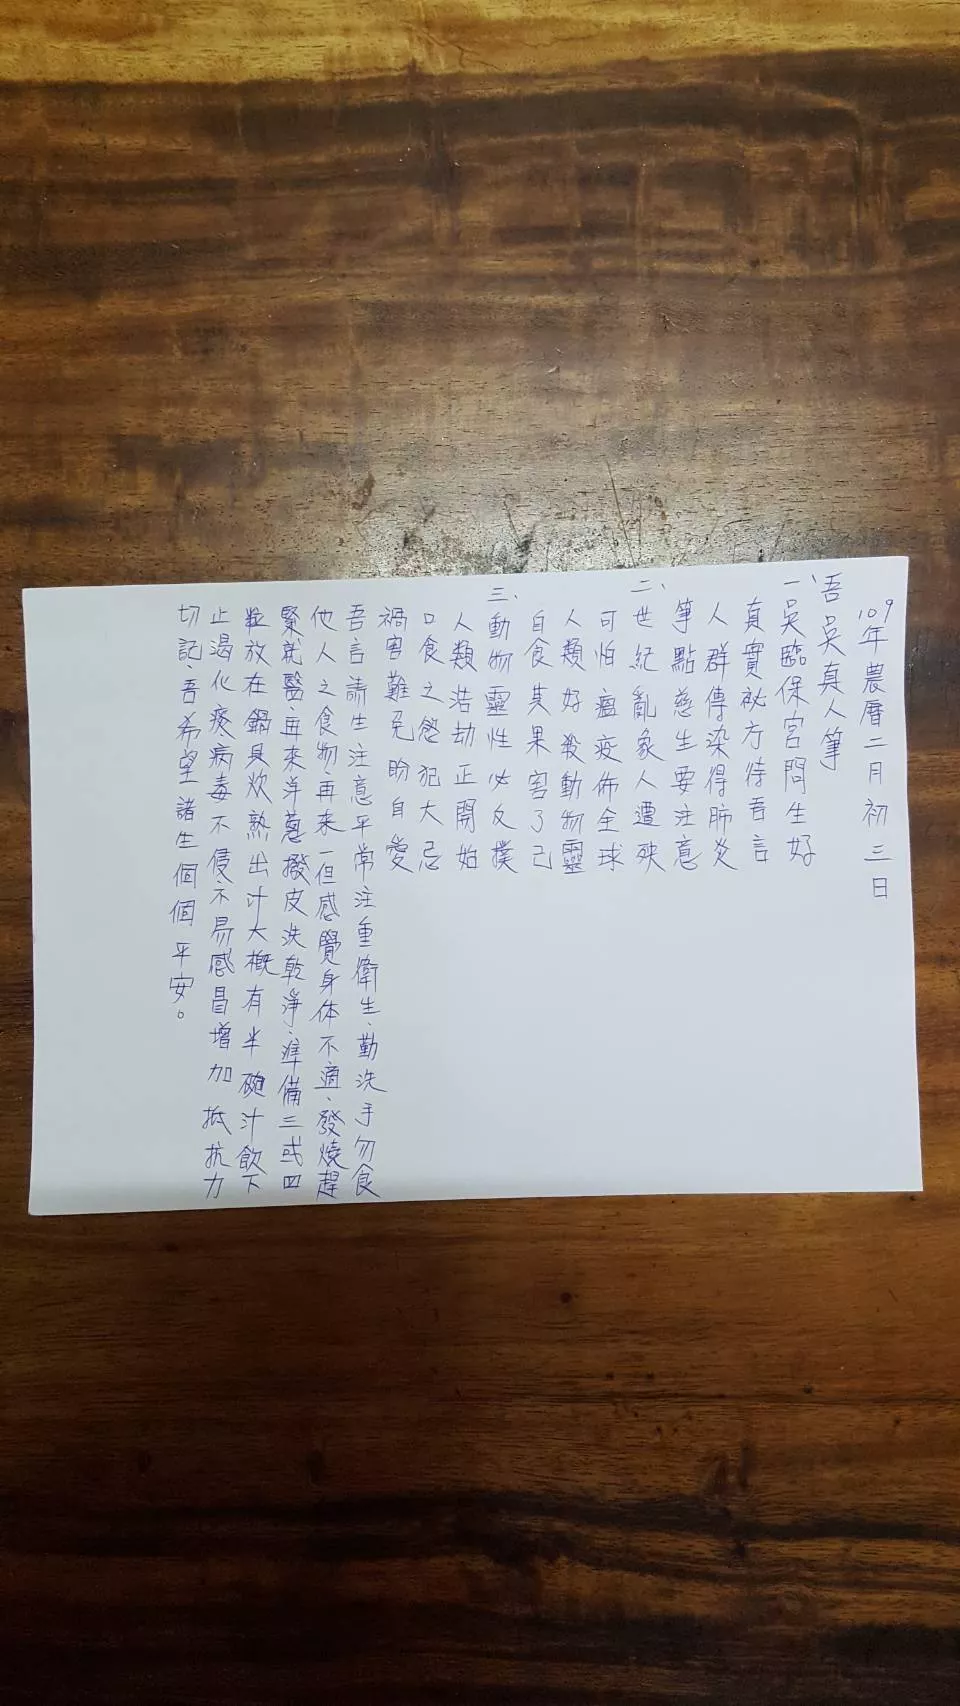 109年農曆二月初三日
吾吳真人筆
一、吳臨保宮問生好
真實祕方待吾言
人群傳染得肺炎
筆點慈生要注意
二、世紀亂象人遭殃
可怕瘟疫佈全球
人類好殺動物靈
自食其果害了己
三、動物靈性必反撲
人類浩劫正開始
口食之慾犯大忌
禍害難免盼自愛
吾言請生注意平常注重衛生、勤洗手勿食
他人之食物、再來一但感覺身体不適、發燒趕
緊就醫、再來洋蔥撥皮洗乾淨、準備三或四
粒放在鍋具炊熟出汁大概有半碗汁飲下
止渴化痰病毒不侵、不易感昌增加抵抗力
切記、吾希望諸生個個平安。